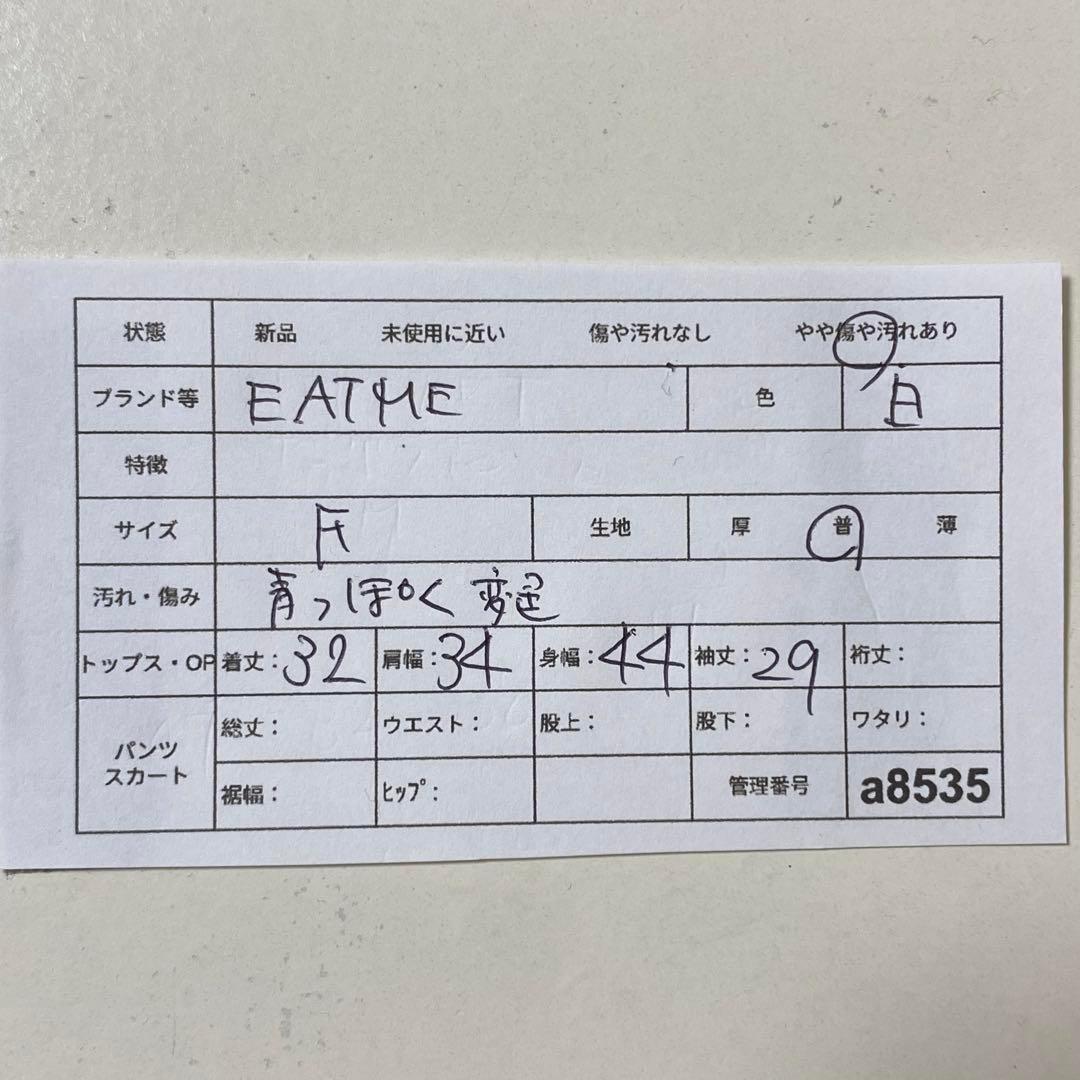 状態 新品 未使用に近い 傷や汚れなし やや傷や汚れあり
ブランド等 EATME 色 白
特徴
サイズ F 生地 厚 普 薄
汚れ・傷み 青っぽく変色
トップス・OP 着丈:32 肩幅:34 身幅:44 袖丈:29 裄丈:
パンツ スカート 総丈: ウエスト: 股上: 股下: ワタリ:
裾幅: ﾋｯﾌﾟ: 管理番号 a8535